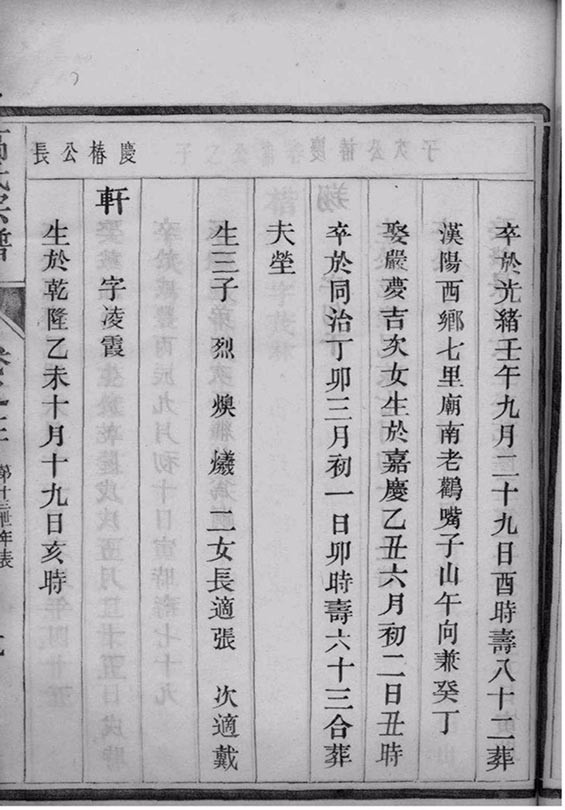 卒於光緒壬午九月二十九日酉時壽八十二葬
漢陽西鄉七里廟南老鸛嘴子山午向兼癸丁
娶嚴夢吉次女生於嘉慶乙丑六月初二日丑時
卒於同治丁卯三月初一日卯時壽六十三合葬
夫塋
生三子 烈 煥 燨 二女長適張 次適戴
慶椿公長
軒 字凌霞
生於乾隆乙未十月十九日亥時
氏宗譜
第十三世年表